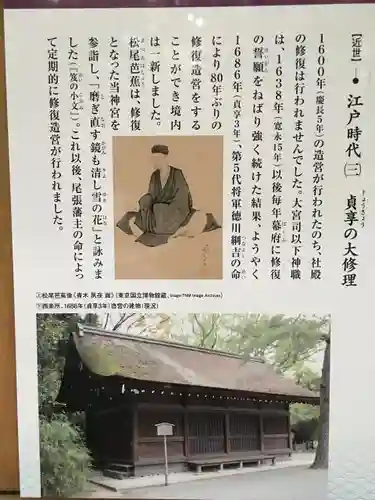 【近世】
●江戸時代㈡ 貞享の大修理
じょうきょう
1600年(慶長5年)の造営が行われたのち、社殿
の修復は行われませんでした。大宮司以下神職
は、1638年(寛永15年)以後毎年幕府に修復
の誓願をねばり強く続けた結果、ようやく
1686年(貞享3年)、第5代将軍徳川綱吉の命
により80年ぶりの
修復造営をする
ことができ境内
は一新しました。
松尾芭蕉は、修復
となった当神宮を
参詣し、「磨ぎ直す鏡も清し雪の花」と詠みま
した(『笈の小文』)。これ以後、尾張藩主の命によっ
て定期的に修復造営が行われました。
松尾芭蕉像(青木 夙夜 画)(東京国立博物館蔵、Image:TNM Image Archives)
西楽所、1686年(貞享3年)造営の建物(現況)